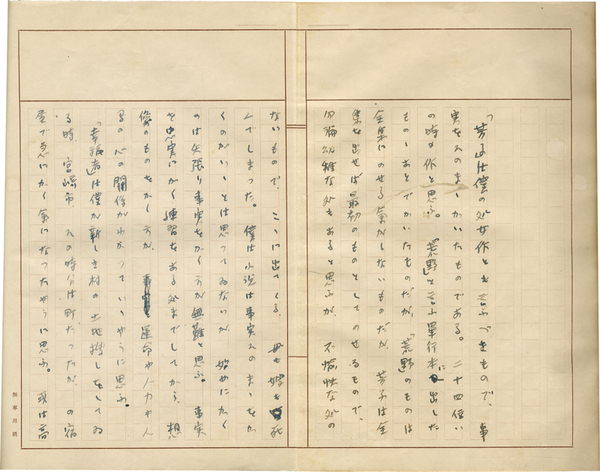 「芳子」は僕の処女作とも云ふべきもので、事
実をそのまゝかいたものである。二十四位い
の時の作と思ふ。「荒野」と云ふ單行本に出した
ものゝあとでかいたものだが、「荒野」のものは
全集にのせる気がしないものだが、芳子は全
集を出せば最初のものとしてのせるもので、
勿論幼稚な処もあると思ふが、不愉快な処の
ないもので、こゝに出てくる、母も娘も死
んでしまつた。僕は小説は事実そのまゝをか
くのがいゝとは思つてゐないが、始めにかく
のは矢張り事実をかく方が無難と思ふ。事実
を忠実にかく練習をある処までしてから、想
像のものをかく方が、運命や人力や人
間の心の関係がわかつていゝやうに思ふ。
「幸福者」は僕が新しき村の土地探しをしてゐ
る時、宮崎市、その時分は町だつたが、の宿
屋で急にかく気になつたやうに思ふ。或は高